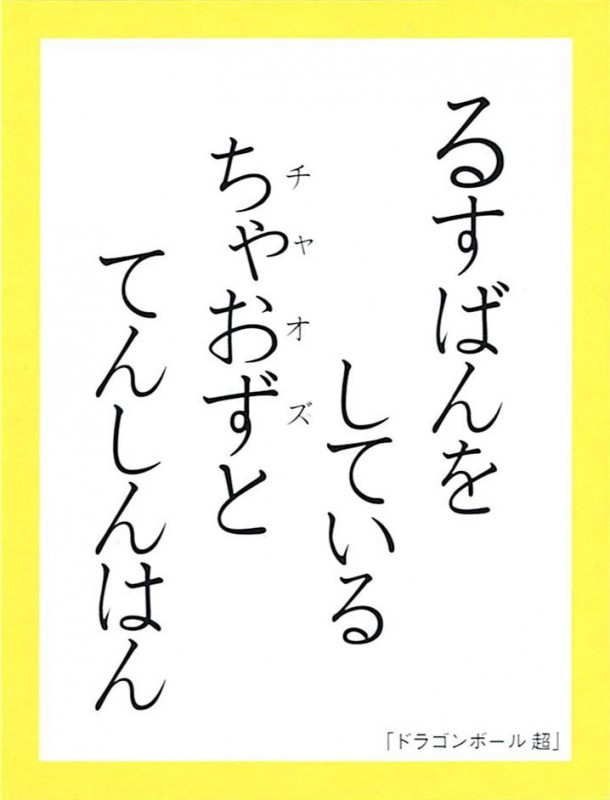 るすばんを
している
ちゃおずと
チャオズ
てんしんはん
「ドラゴンボール 超」